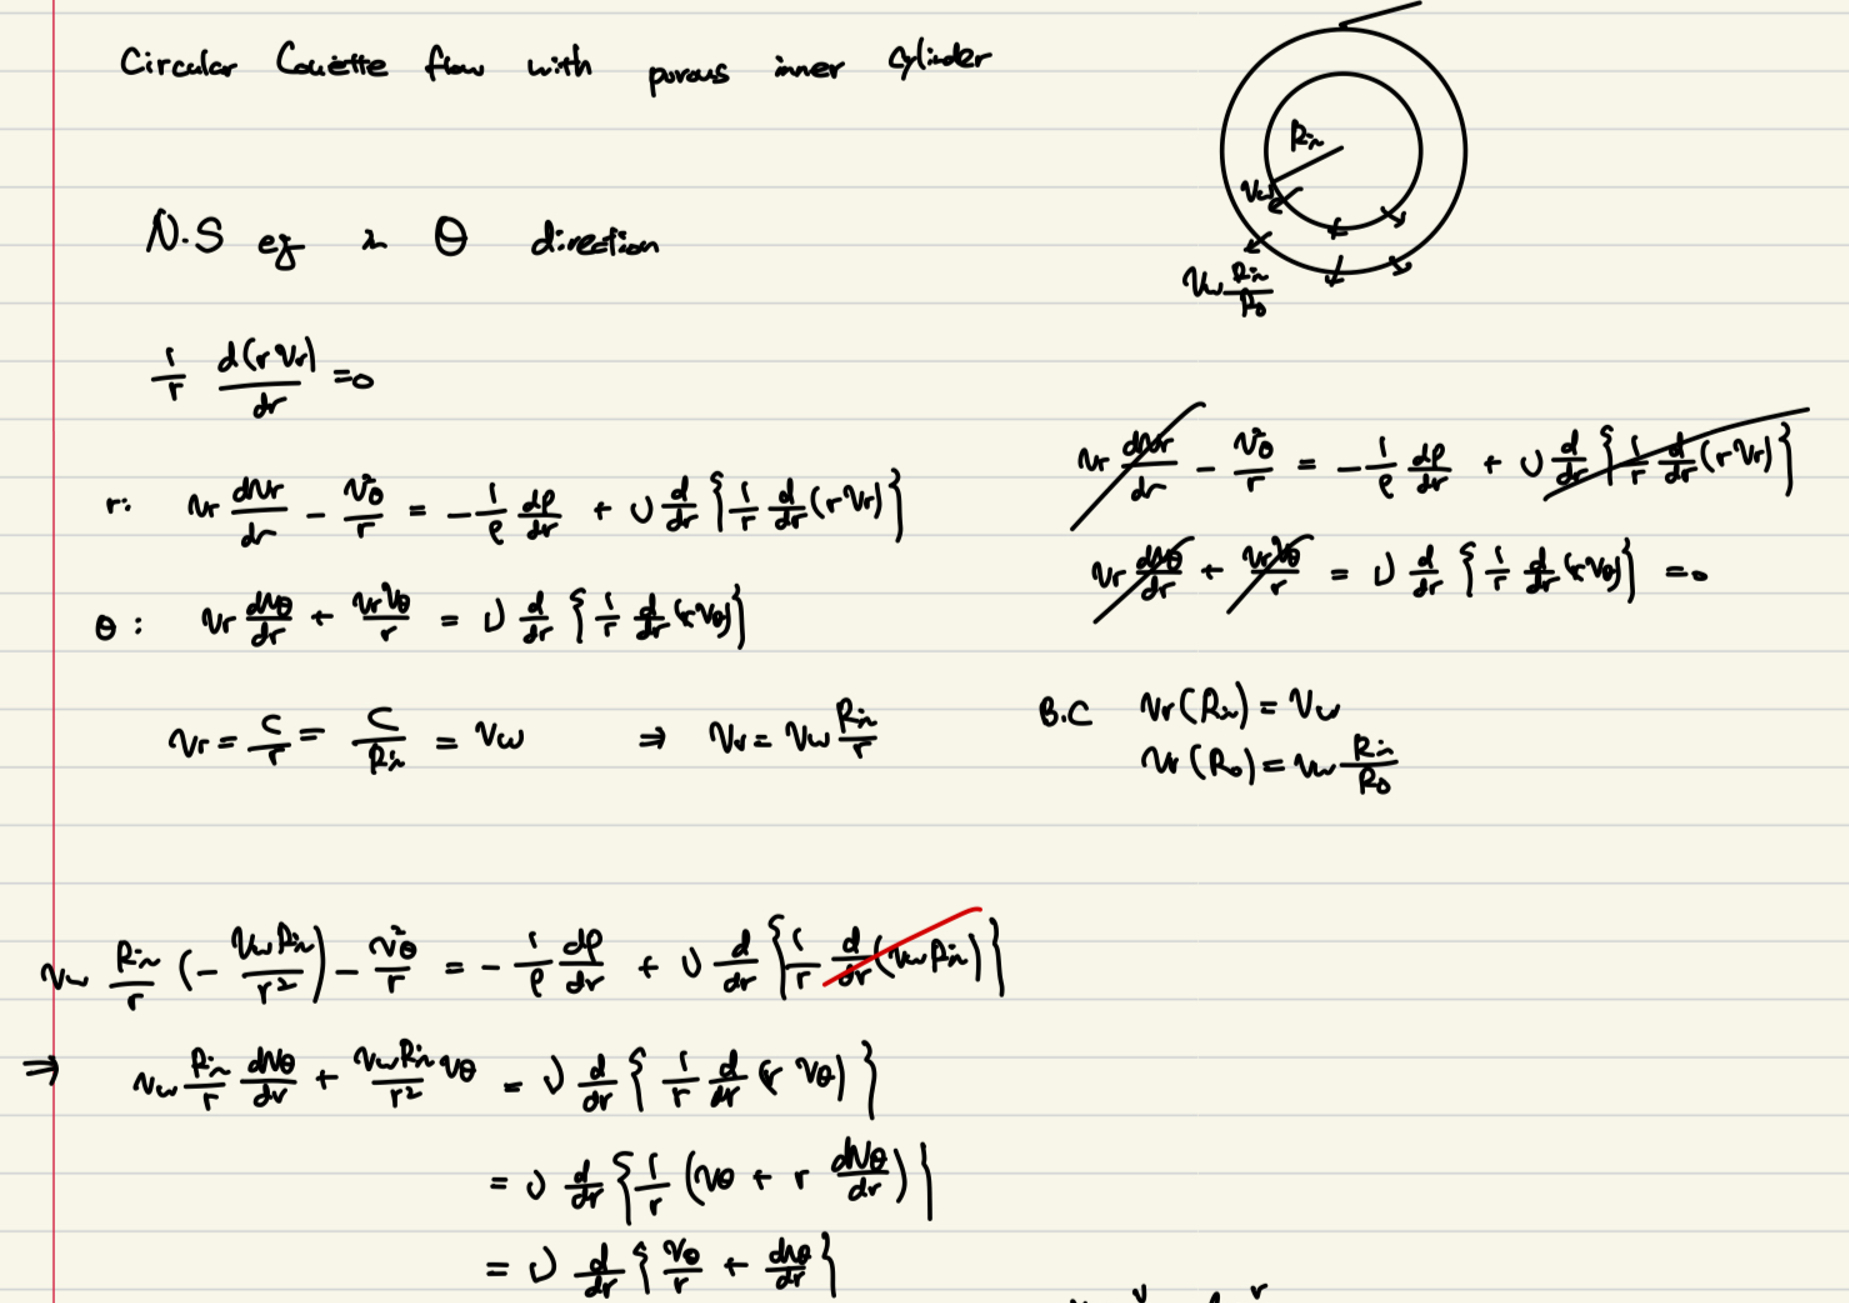 Circular Couette flow with porous inner cylinder
Rin
Vw
Vw Rin/Ro
N.S eq in θ direction
1/r d(r Vr)/dr = 0
r: Vr dVr/dr - Vθ²/r = - 1/ρ dp/dr + ν d/dr {1/r d/dr (r Vr)}
θ: Vr dVθ/dr + VrVθ/r = ν d/dr {1/r d/dr (r Vθ)}
Vr dVr/dr - Vθ²/r = - 1/ρ dp/dr + ν d/dr {1/r d/dr (r Vr)}
Vr dVθ/dr + VrVθ/r = ν d/dr {1/r d/dr (r Vθ)} = 0
Vr = C/r = C/Rin = Vw ⇒ Vr = Vw Rin/r
B.C Vr(Rin) = Vw
Vr(Ro) = Vw Rin/Ro
Vw Rin/r (- Vw Rin/r²) - Vθ²/r = - 1/ρ dp/dr + ν d/dr {1/r d/dr (Vw Rin)}
⇒ Vw Rin/r dVθ/dr + Vw Rin/r² Vθ = ν d/dr {1/r d/dr (r Vθ)}
= ν d/dr {1/r (Vθ + r dVθ/dr)}
= ν d/dr {Vθ/r + dVθ/dr}